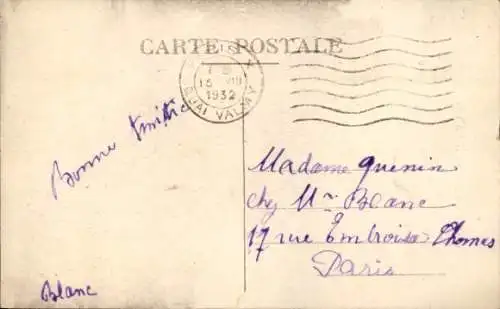 CARTE POSTALE
PARIS
15 VIII
1932
QUAI VALMY
Bonne
Blanc
Madame Quenin
chez Mr Blanc
17 rue Embroise Thomas
Paris